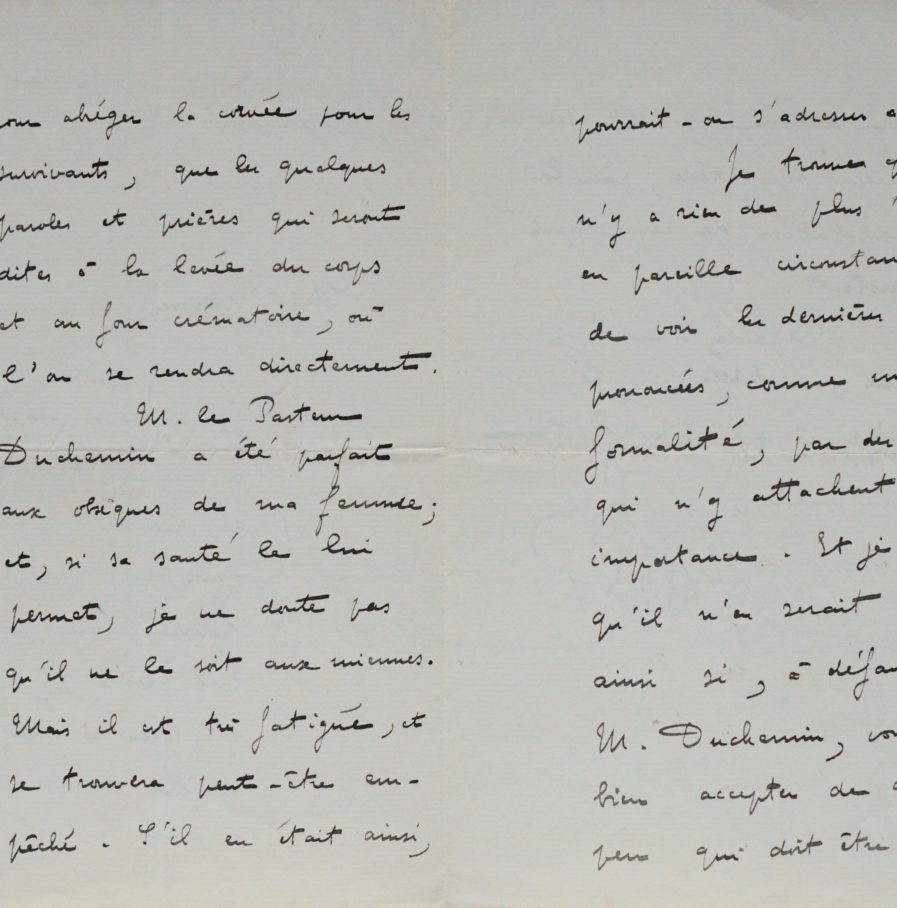 pour abréger la corvée pour les
survivants, que les quelques
paroles et prières qui seront
dites à la levée du corps
et au four crématoire, où
l'on se rendra directement.
M. le Pasteur
Duchemin a été parfait
aux obsèques de ma femme;
et, si sa santé le lui
permet, je ne doute pas
qu'il ne le soit aux miennes.
Mais il est très fatigué, et
se trouvera peut-être em-
pêché. S'il en était ainsi,
pourrait-on s'adresser
Je trouve
n'y a rien de plus
en pareille
de voir les dernières
prononcées, comme
formalité, par des
qui n'y attachent
importance. Et je
qu'il n'en serait
ainsi si, à
M. Duchemin,
bien accepter de
peu qui doit être